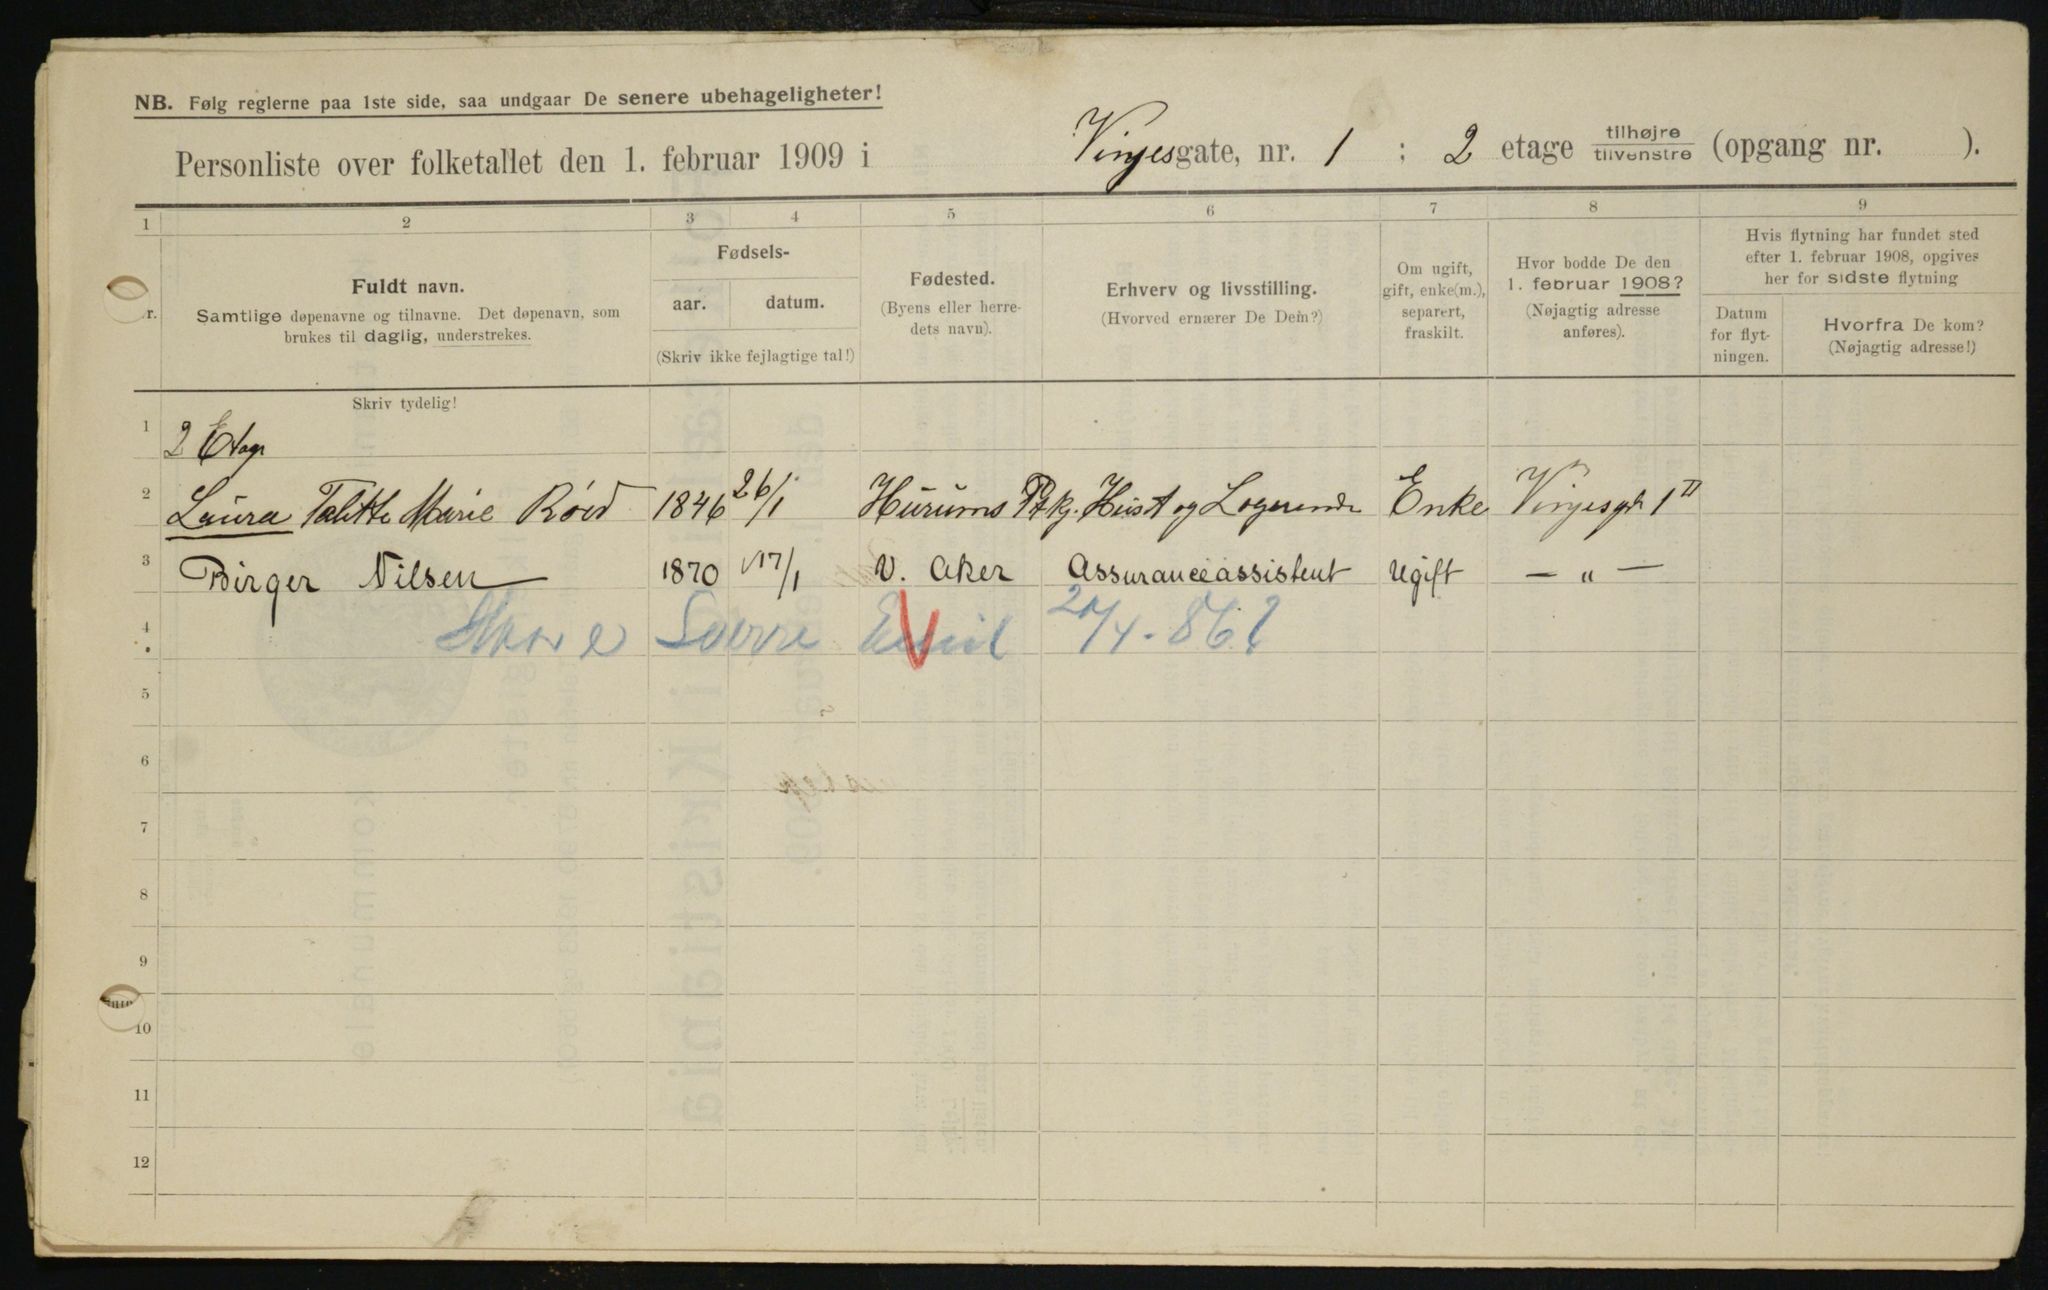 NB. Følg reglerne paa 1ste side, saa undgaar De senere ubehageligheter!
Personliste over folketallet den 1. februar 1909 i Vinjesgate, nr. 1 ; 2 etage tilhøjre tilvenstre (opgang nr. ).
1 2 3 4 5 6 7 8 9
r.
Fuldt navn.
Samtlige døpenavne og tilnavne. Det døpenavn, som
brukes til daglig, understrekes.
Fødsels-
aar. datum.
(Skriv ikke fejlagtige tal!)
Fødested.
(Byens eller herre-
dets navn).
Erhverv og livsstilling.
(Hvorved ernærer De Dem?)
Om ugift,
gift, enke(m.),
separert,
fraskilt.
Hvor bodde De den
1. februar 1908?
(Nøjagtig adresse
anføres).
Hvis flytning har fundet sted
efter 1. februar 1908, opgives
her for sidste flytning
Datum
for flyt-
ningen.
Hvorfra De kom?
(Nøjagtig adresse!)
Skriv tydelig!
1 2 Etage
2 Laura Marie Röed 1846 26/1 Hurums Logerende Enke Vinjesgt 1 II
3 Birger Nilsen 1870 17/1 V. Aker Assuranceassistent Ugift — " —
4 Sverre Emil
5
6
7
8
9
10
11
12